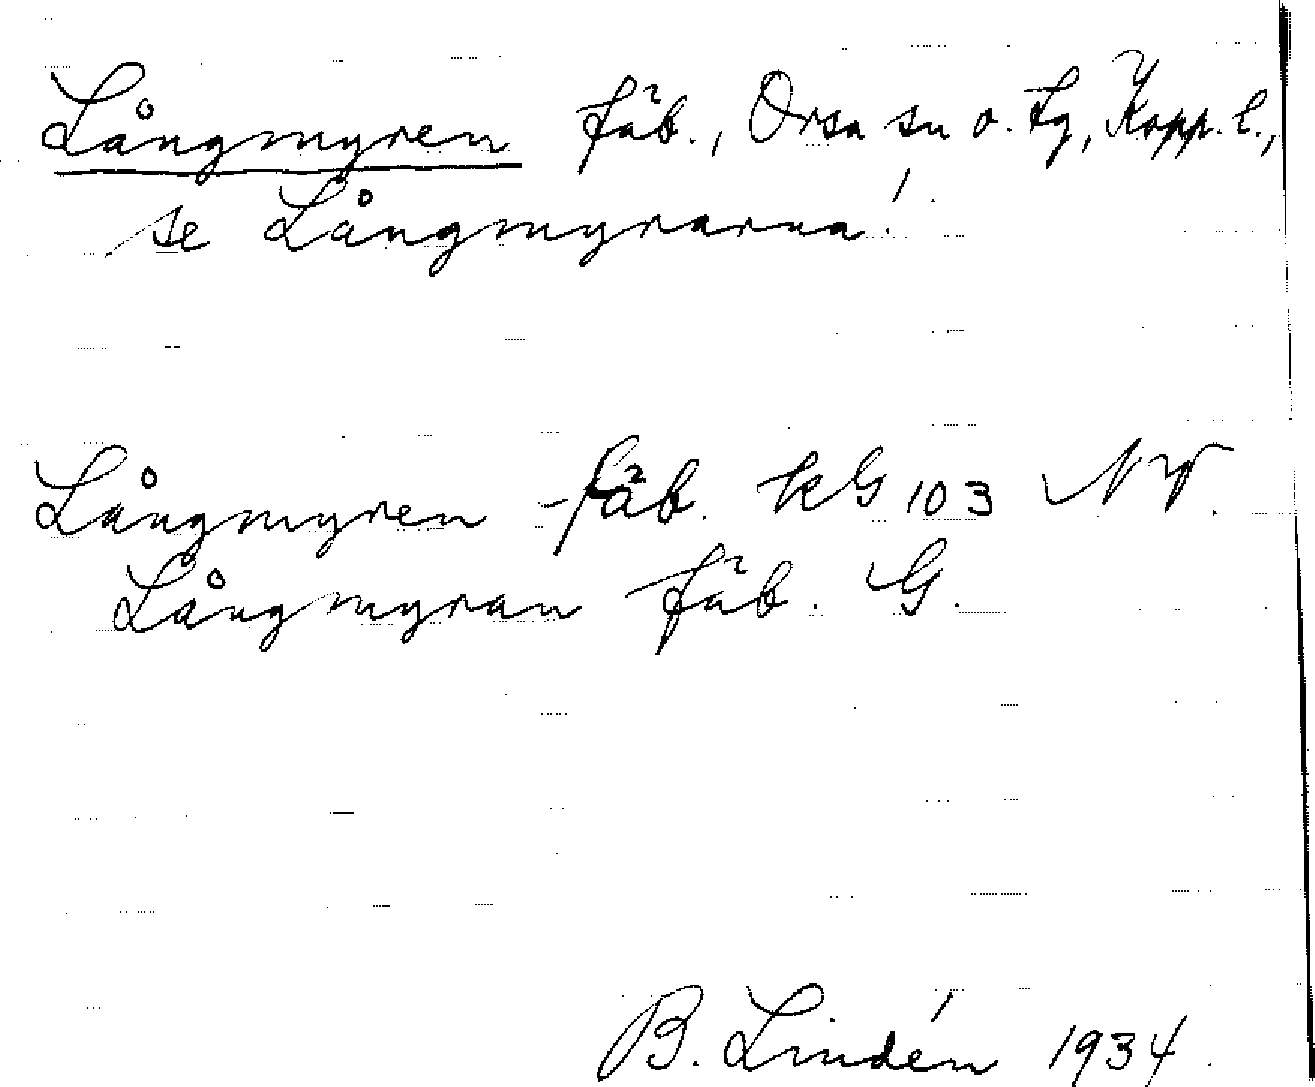 Långmyren fäb., Orsa sn o. tg, Kopp. l.,
se Långmyrarna!
Långmyren fäb. kG 103 NV.
Långmyran fäb. G.
B. Lindén 1934.